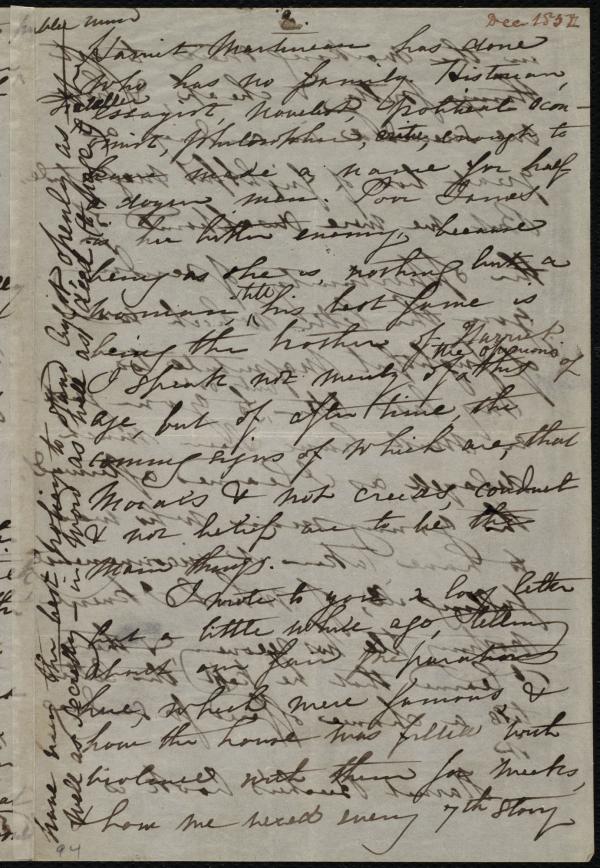 2.
Dec 1852
Harriet Martineau has done
who has no family. Historian,
essayist, novelist, political econ-
omist, philosopher, enough to
have made a name for half
a dozen men. Poor James
is her bitter enemy, because
being as she is, nothing but a
woman still his best fame is
being the brother of Harriet.
I speak not merely of the opinions of this
age, but of after time, the
coming signs of which are, that
Morals & not creeds, conduct
& not belief are to be the
main things.
I wrote to you a long letter
but a little while ago, telling
about our fair preparations
here, which were famous &
how the house was filled with
violence with them for weeks,
& how we every 7th story
have urged the best to stand by it openly as
well as secretly — in word as well as